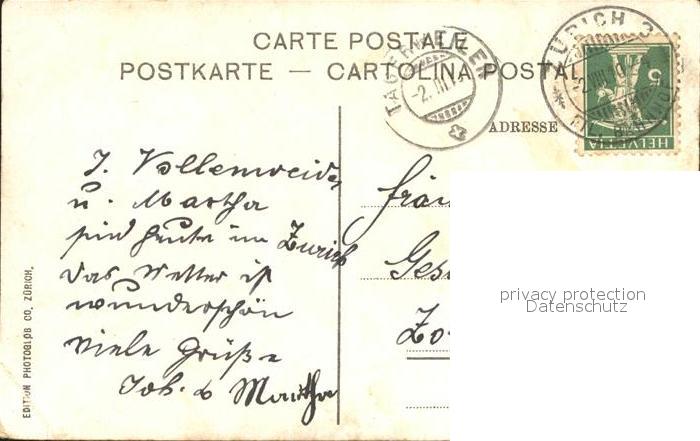 CARTE POSTALE
POSTKARTE — CARTOLINA POSTAL
TÄGERWILEN
-2. III.
ZÜRICH 3
-2. III. 10
HELVETIA
5
ADRESSE
J. Vollenweider
u. Martha
sind heute in Zürich
das Wetter ist
wunderschön
viele Grüße
Joh. & Martha
Fräu
Ges
Zo
privacy protection
Datenschutz
EDITION PHOTOGLOB CO. ZÜRICH.